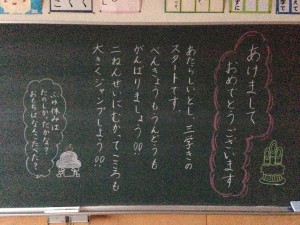 あけまして
おめでとうございます
あたらしいとし、三学きの
スタートです。
べんきょうもうんどうも
がんばりましょう!!
二ねんせいにむかってこころも
大きくジャンプしよう!!
ふゆ休みは
たのしかったかな?
おもちはなんこたべた?